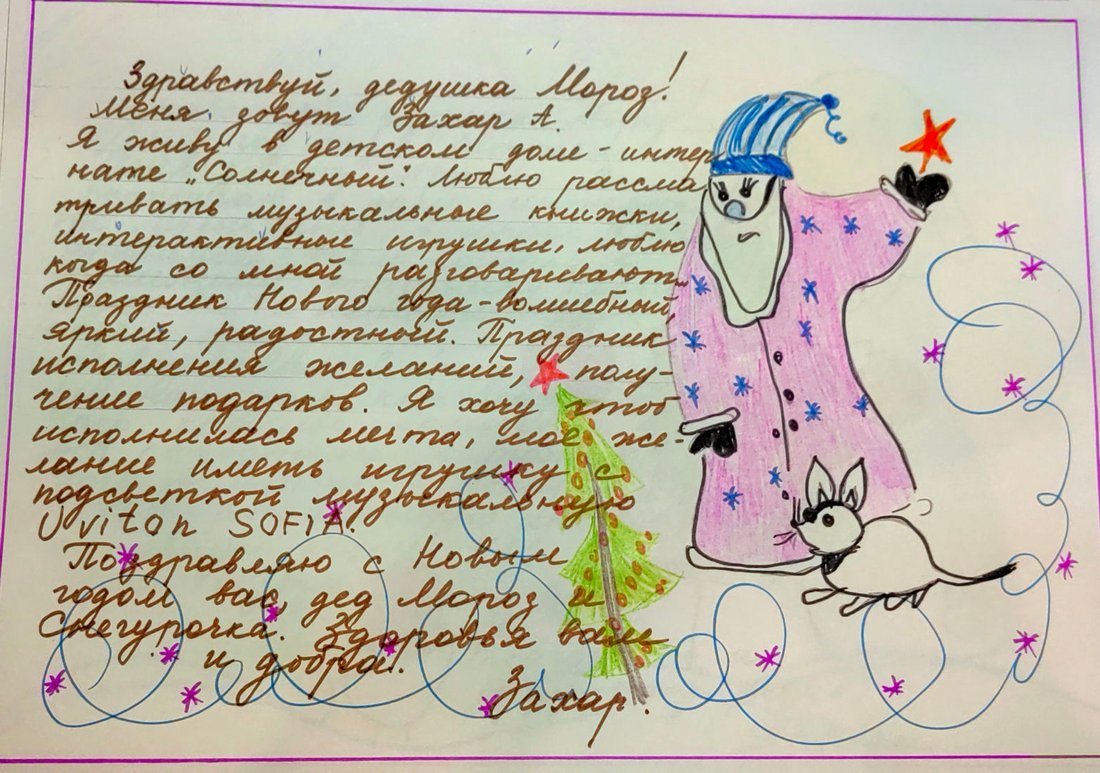 Здравствуй, дедушка Мороз!
Меня зовут Захар А.
Я живу в детском доме-интер
нате „Солнечный". Люблю рассма
тривать музыкальные книжки,
интерактивные игрушки, люблю
когда со мной разговаривают.
Праздник Нового года-волшебный,
яркий, радостный. Праздник
исполнения желаний, полу-
чение подарков. Я хочу чтоб
исполнилась мечта, мое же-
лание иметь игрушку с
подсветкой музыкальную
Uviton SOFIA.
Поздравляю с Новым
годом вас, дед Мороз и
Снегурочка. Здоровья вам
и добра!
Захар.